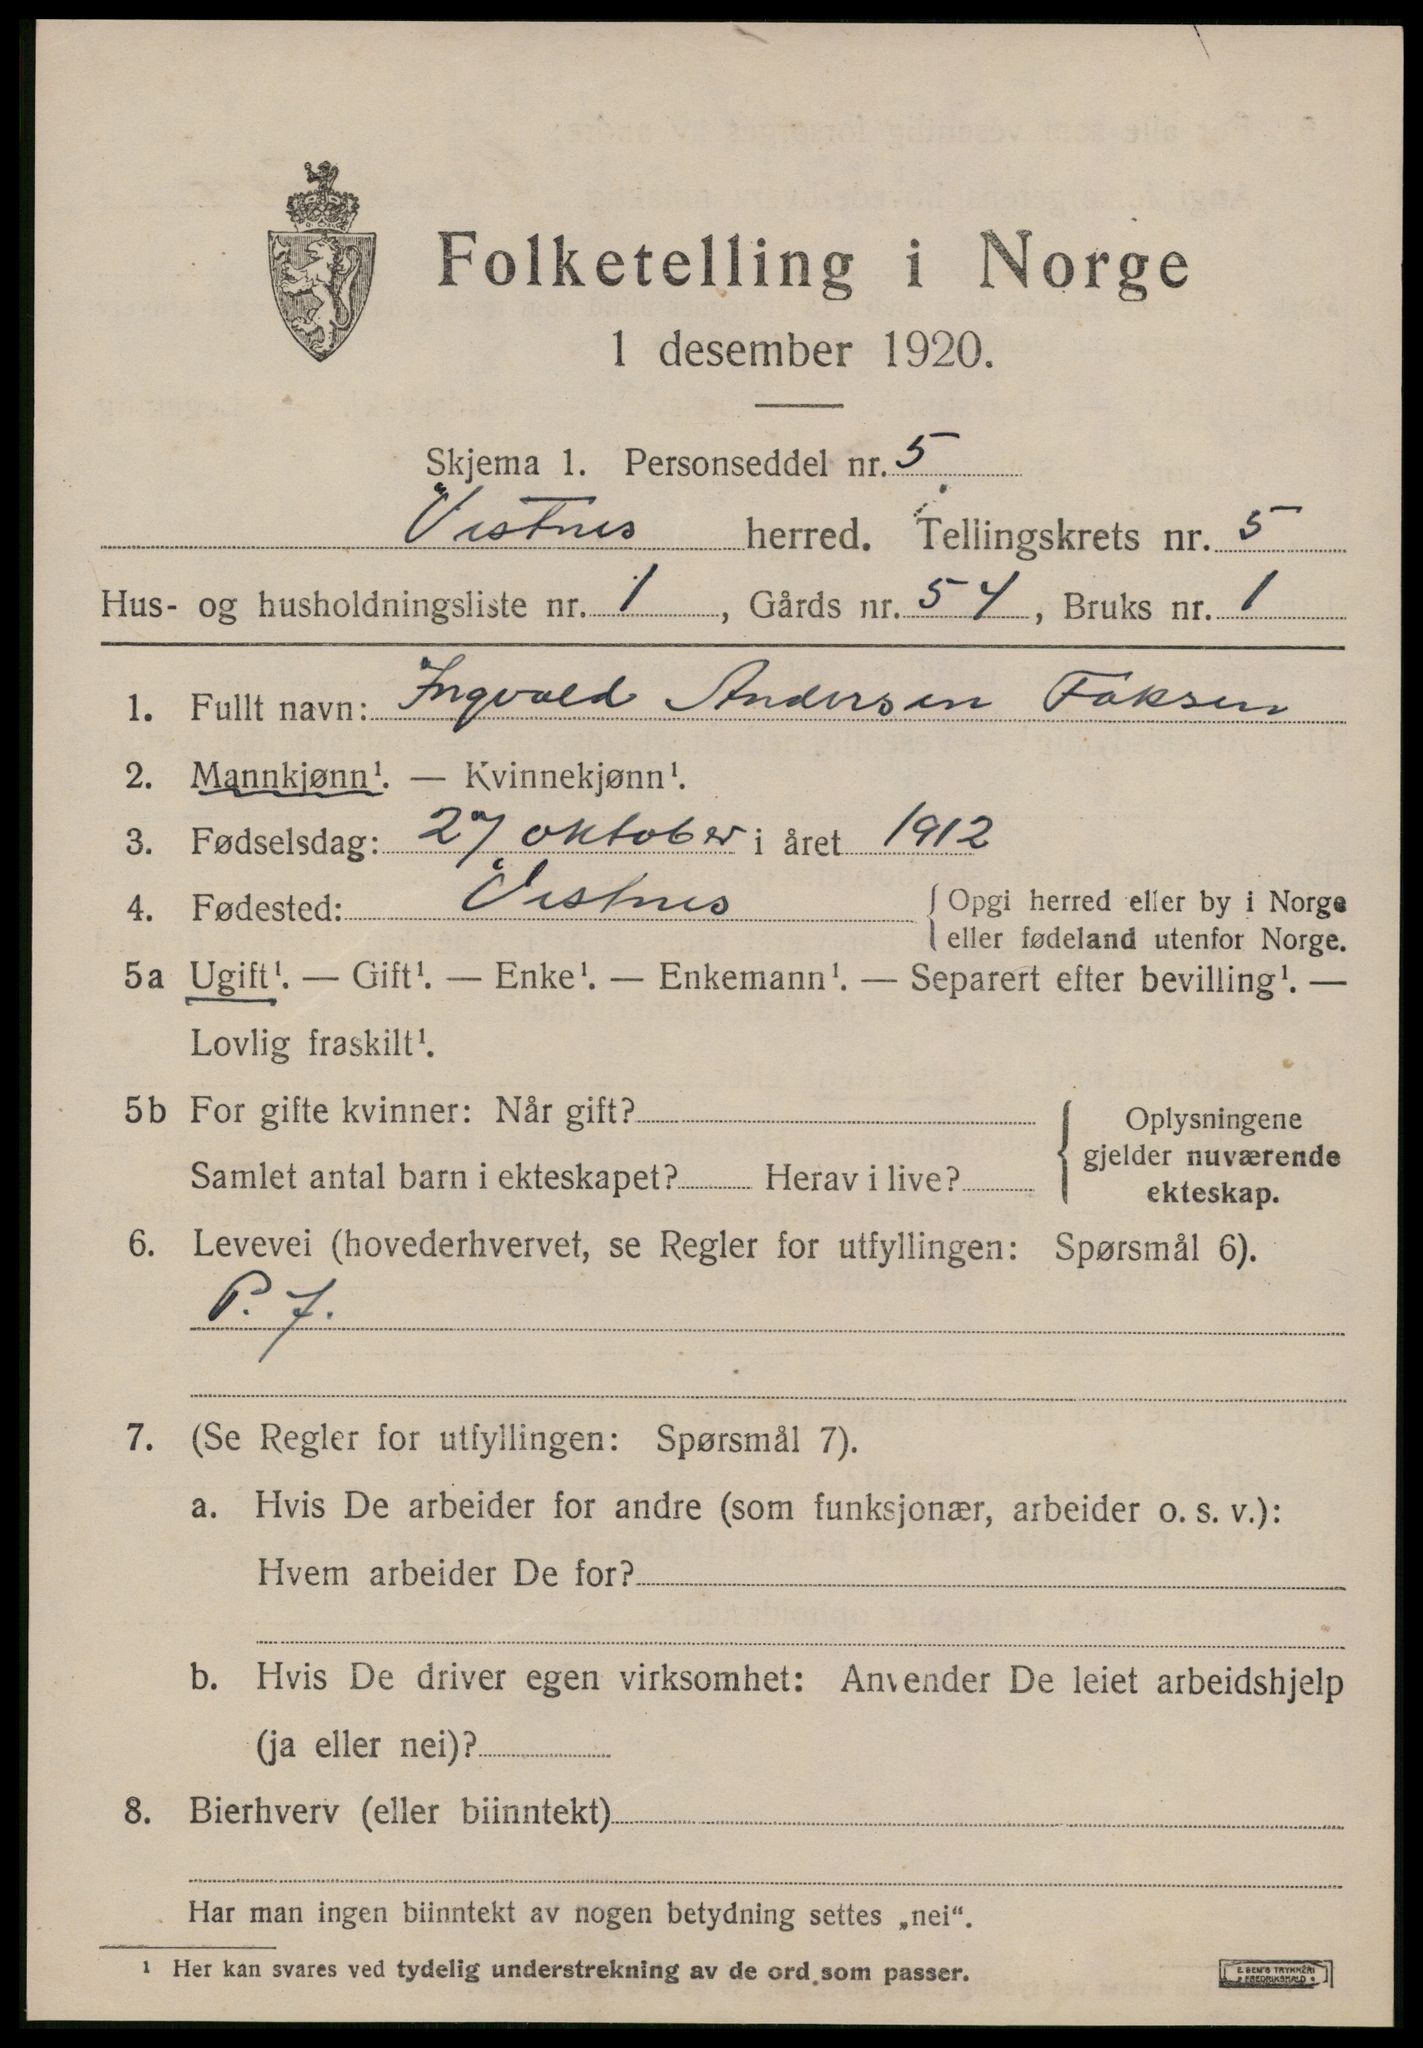 Folketelling i Norge
1 desember 1920.
Skjema 1. Personseddel nr. 5
Vestnes herred. Tellingskrets nr. 5
Hus- og husholdningsliste nr. 1, Gårds nr. 54, Bruks nr. 1
1. Fullt navn: Ingvald Andersen Faksen
2. Mannkjønn¹. — Kvinnekjønn¹.
3. Fødselsdag: 27 oktober i året 1912
4. Fødested: Vestnes { Opgi herred eller by i Norge
eller fødeland utenfor Norge.
5a Ugift¹. — Gift¹. — Enke¹. — Enkemann¹. — Separert efter bevilling¹. —
Lovlig fraskilt¹.
5b For gifte kvinner: Når gift?
Samlet antal barn i ekteskapet? Herav i live?
{ Oplysningene
gjelder nuværende
ekteskap.
6. Levevei (hovederhvervet, se Regler for utfyllingen: Spørsmål 6).
P. f.
7. (Se Regler for utfyllingen: Spørsmål 7).
a. Hvis De arbeider for andre (som funksjonær, arbeider o. s. v.):
Hvem arbeider De for?
b. Hvis De driver egen virksomhet: Anvender De leiet arbeidshjelp
(ja eller nei)?
8. Bierhverv (eller biinntekt)
Har man ingen biinntekt av nogen betydning settes „nei“.
¹ Her kan svares ved tydelig understrekning av de ord som passer.
E. SEM'S TRYKKERI
FREDRIKSHALD